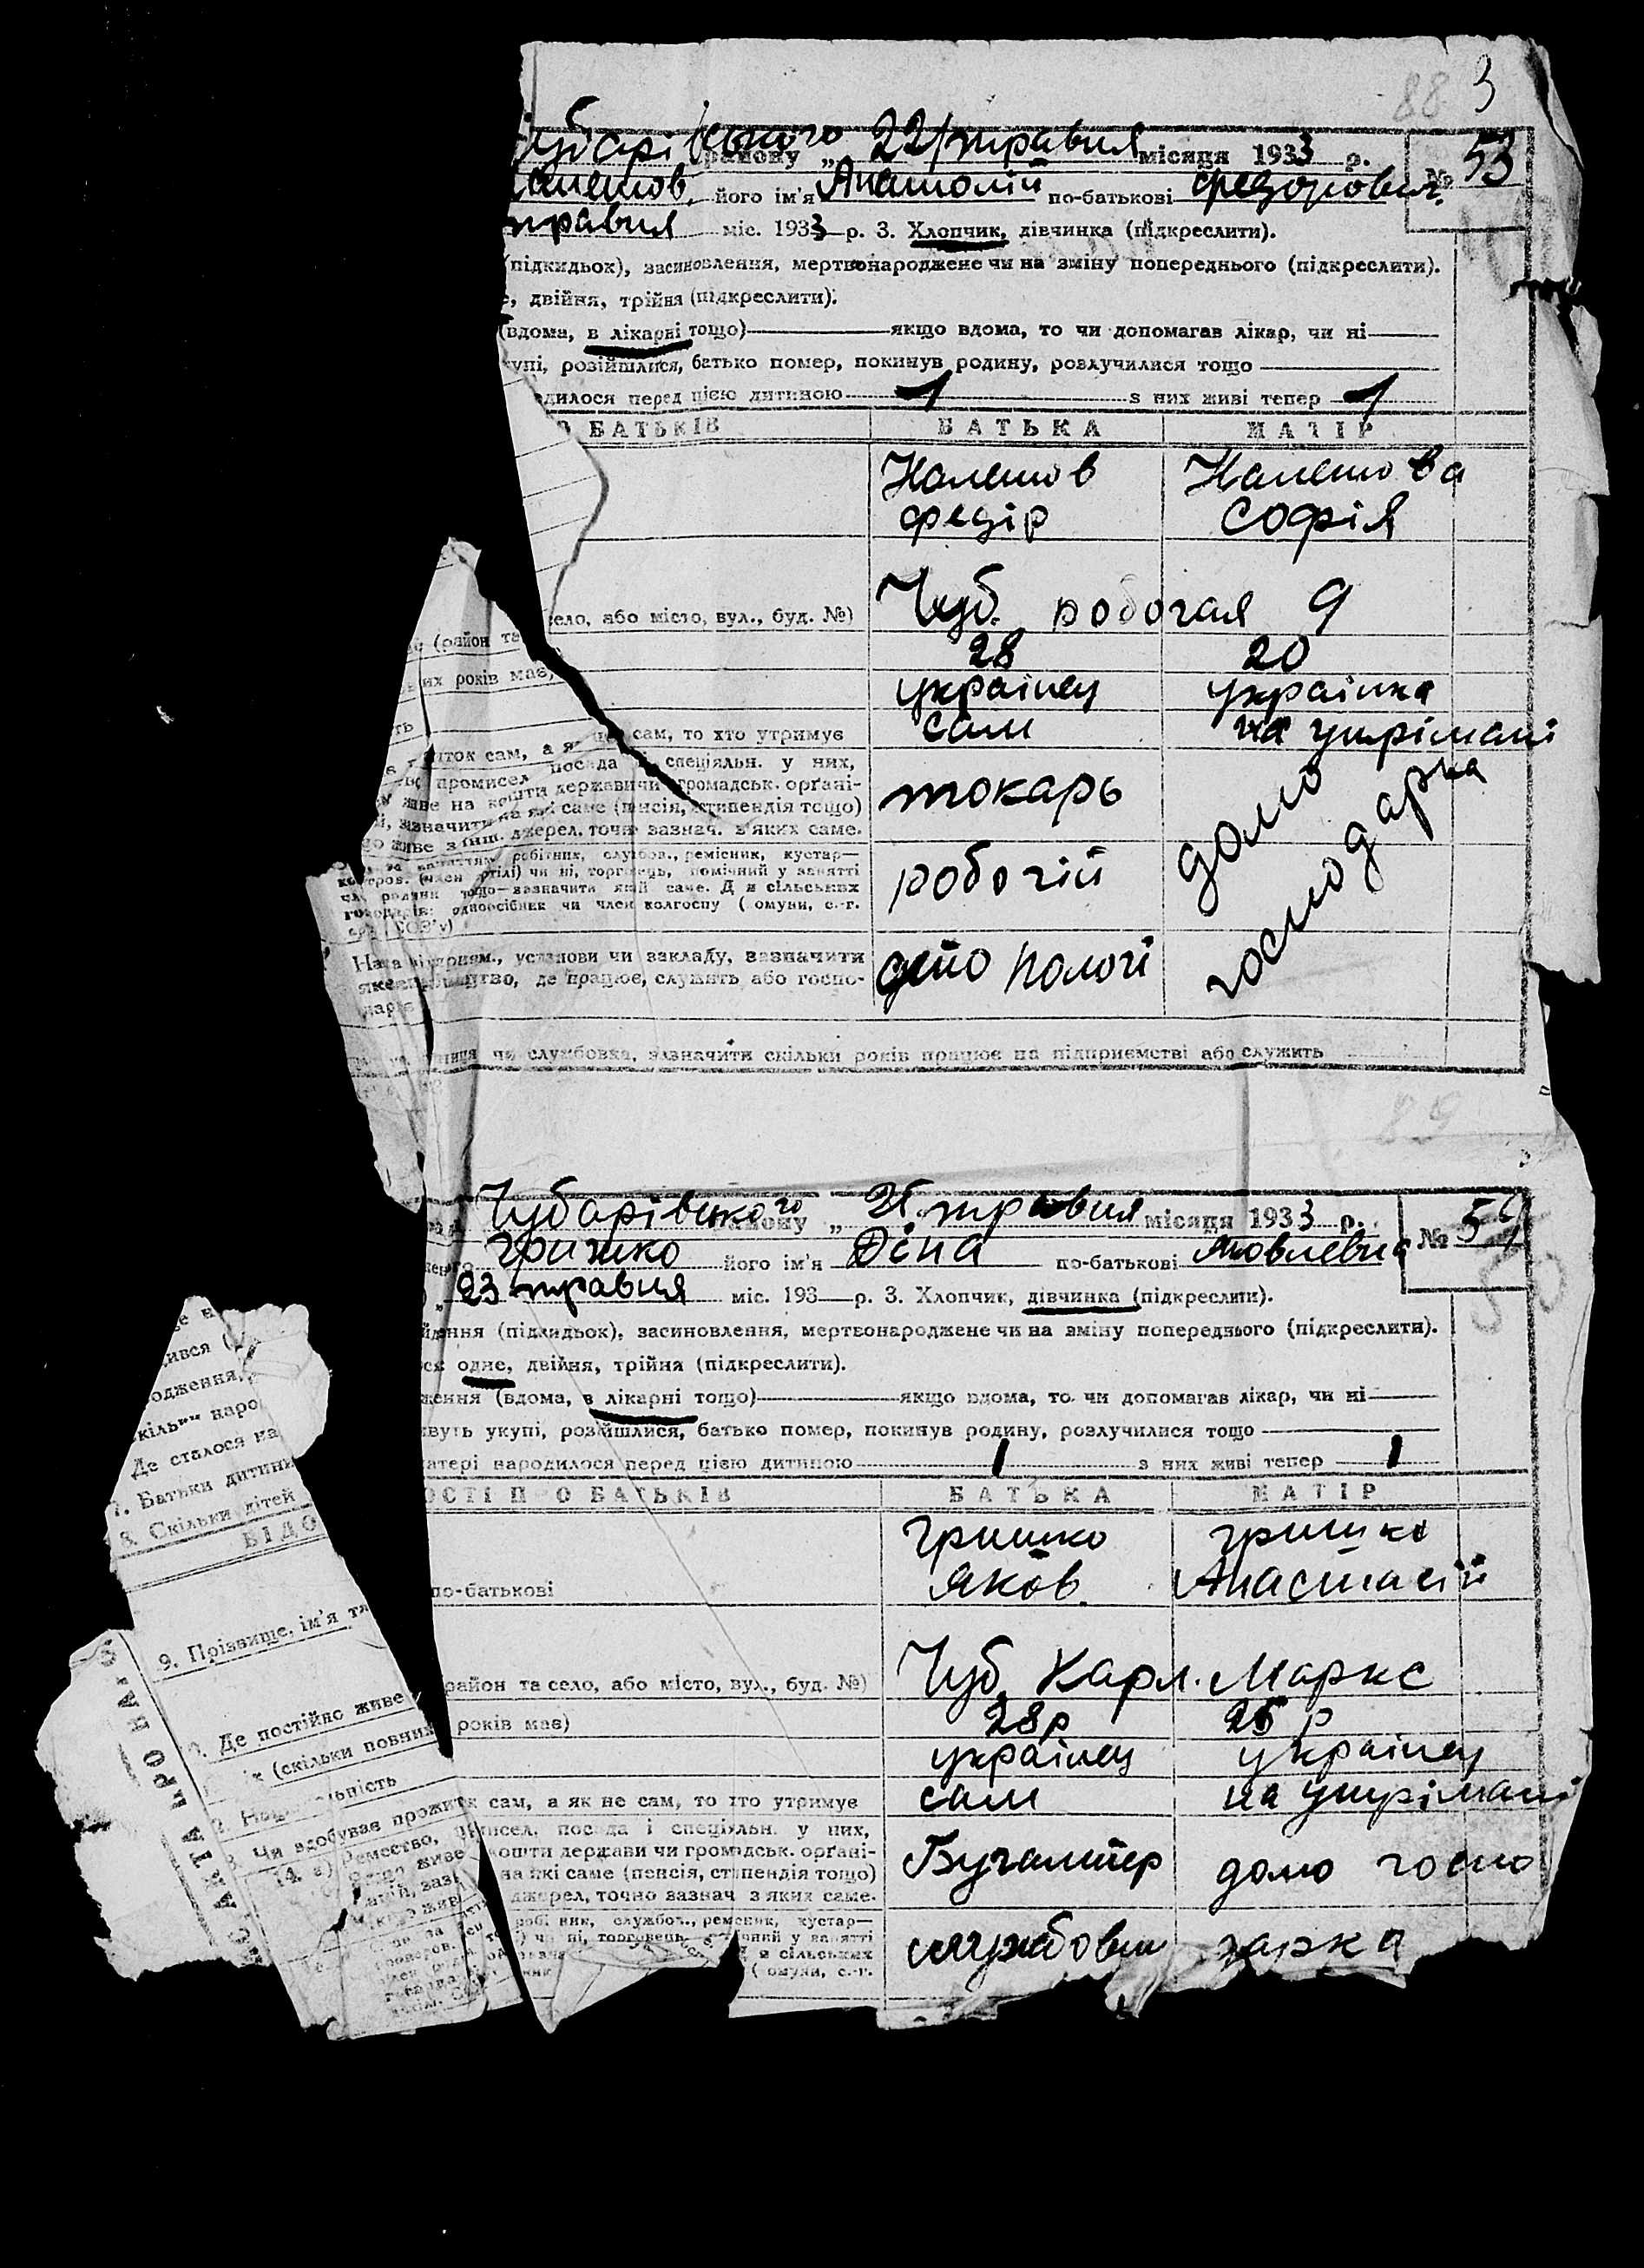 88 3
Чубарівського району „ 22 травня місяця 1933 р. № 53
його ім'я Анатолій по-батькові Федорович
травня міс. 1933 р. 3. Хлопчик, дівчинка (підкреслити).
(підкидьок), засиновлення, мертвонароджене чи на зміну попереднього (підкреслити).
двійня, трійня (підкреслити).
(вдома, в лікарні тощо) якщо вдома, то чи допомагав лікар, чи ні
упі, розійшлися, батько помер, покинув родину, розлучилися тощо
дилося перед цією дитиною 1 з них живі тепер 1
О БАТЬКІВ БАТЬКА МАТІР
Калешов Калешова
Федір Софія
село, або місто, вул., буд. №) Чуб. робочая 9
(район та
их років має) 28 20
українец українка
ть
сам, а як не сам, то хто утримує сам на утрімані
промисел, посада і спеціяльн. у них,
живе на кошти держави чи громадськ. орґані-
зазначити на які саме (пенсія, стипендія тощо)
живе з інш. джерел, точно зазнач. з яких саме.
токарь домо
господарка
робітник, службов., ремісник, кустар—
чи ні, торговець, помічний у занятті
родини тощо—зазначити який саме. Для сільських
господарів: одноосібник чи член колгоспу (комуни, с.-г.
робочій
Назва підприєм., установи чи закладу, зазначити
яке виробництво, де працює, служить або госпо-
дарює
депо пологі
чи службовка, зазначити скільки років працює на підприємстві або служить
89
Чубарівського району „ травня місяця 1933 р. № 54
50
Гришко його ім'я Діна по-батькові Яковлевна
„ 23 травня міс. 193 р. 3. Хлопчик, дівчинка (підкреслити).
йдення (підкидьок), засиновлення, мертвонароджене чи на зміну попереднього (підкреслити).
ся одне, двійня, трійня (підкреслити).
ження (вдома, в лікарні тощо) якщо вдома, то чи допомагав лікар, чи ні
ивуть укупі, розійшлися, батько помер, покинув родину, розлучилися тощо
атері народилося перед цією дитиною 1 з них живі тепер 1
ОСТІ ПРО БАТЬКІВ БАТЬКА МАТІР
ився (
одження,
кільки наро
Де сталося на
7. Батьки дитини
8. Скільки дітей
ВІДО
Гришко Гришко
по-батькові Яков Анастасій
9. Прізвище, ім'я та
район та село, або місто, вул., буд. №) Чуб. Карл. Маркс
Де постійно живе
років має) 28р 25 р
(скільки повних
українец українец
Національність
сам, а як не сам, то хто утримує сам на утрімані
Чи здобуває прожиток
14. а) Ремество, промисел, посада і спеціяльн. у них,
Якщо живе кошти держави чи громадськ. орґані-
на які саме (пенсія, стипендія тощо)
джерел, точно зазнач. з яких саме.
Бугалтер домо госпо
робітник, службов., ремісник, кустар—
чи ні, торговець, помічний у занятті
сільських
(комуни, с.-г.
службовец дарка